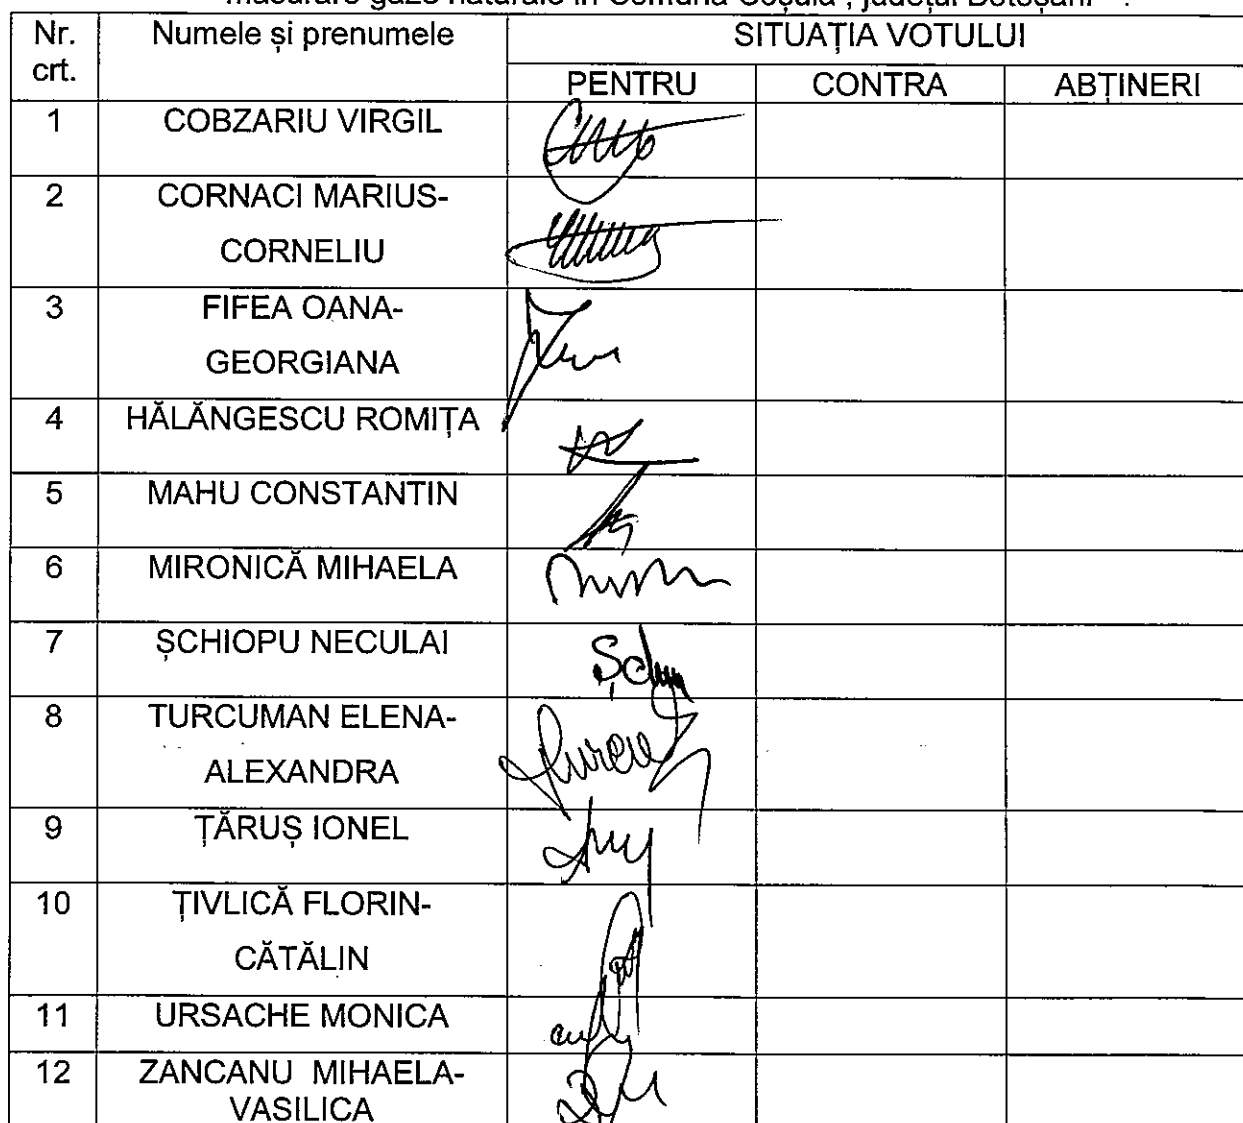 măsurare gaze naturale în Comuna Coșula , județul Botoșani
Nr. crt.
Numele și prenumele
SITUAȚIA VOTULUI
PENTRU
CONTRA
ABȚINERI
1
COBZARIU VIRGIL
2
CORNACI MARIUS-
CORNELIU
3
FIFEA OANA-
GEORGIANA
4
HĂLĂNGESCU ROMIȚA
5
MAHU CONSTANTIN
6
MIRONICĂ MIHAELA
7
ȘCHIOPU NECULAI
8
TURCUMAN ELENA-
ALEXANDRA
9
ȚĂRUȘ IONEL
10
ȚIVLICĂ FLORIN-
CĂTĂLIN
11
URSACHE MONICA
12
ZANCANU MIHAELA-
VASILICA